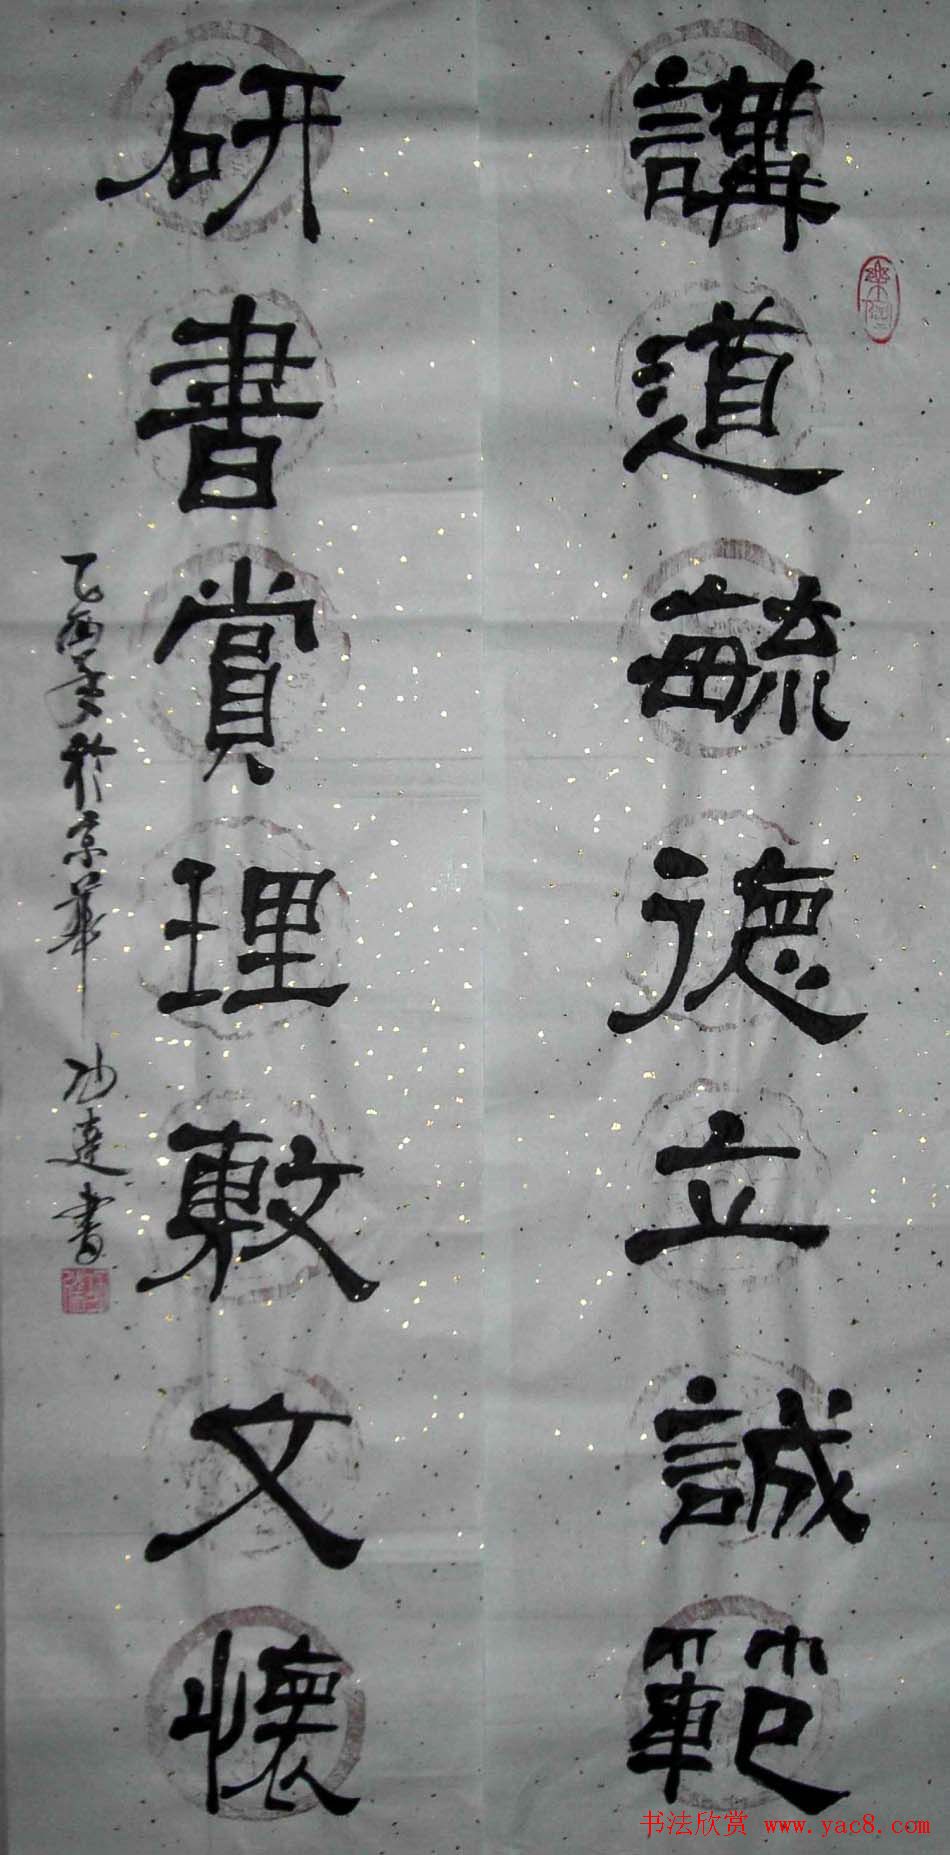 講道毓德立誠範
研書賞理敷文懷
乙酉季於京華
達書
书法欣赏 www.yac8.com